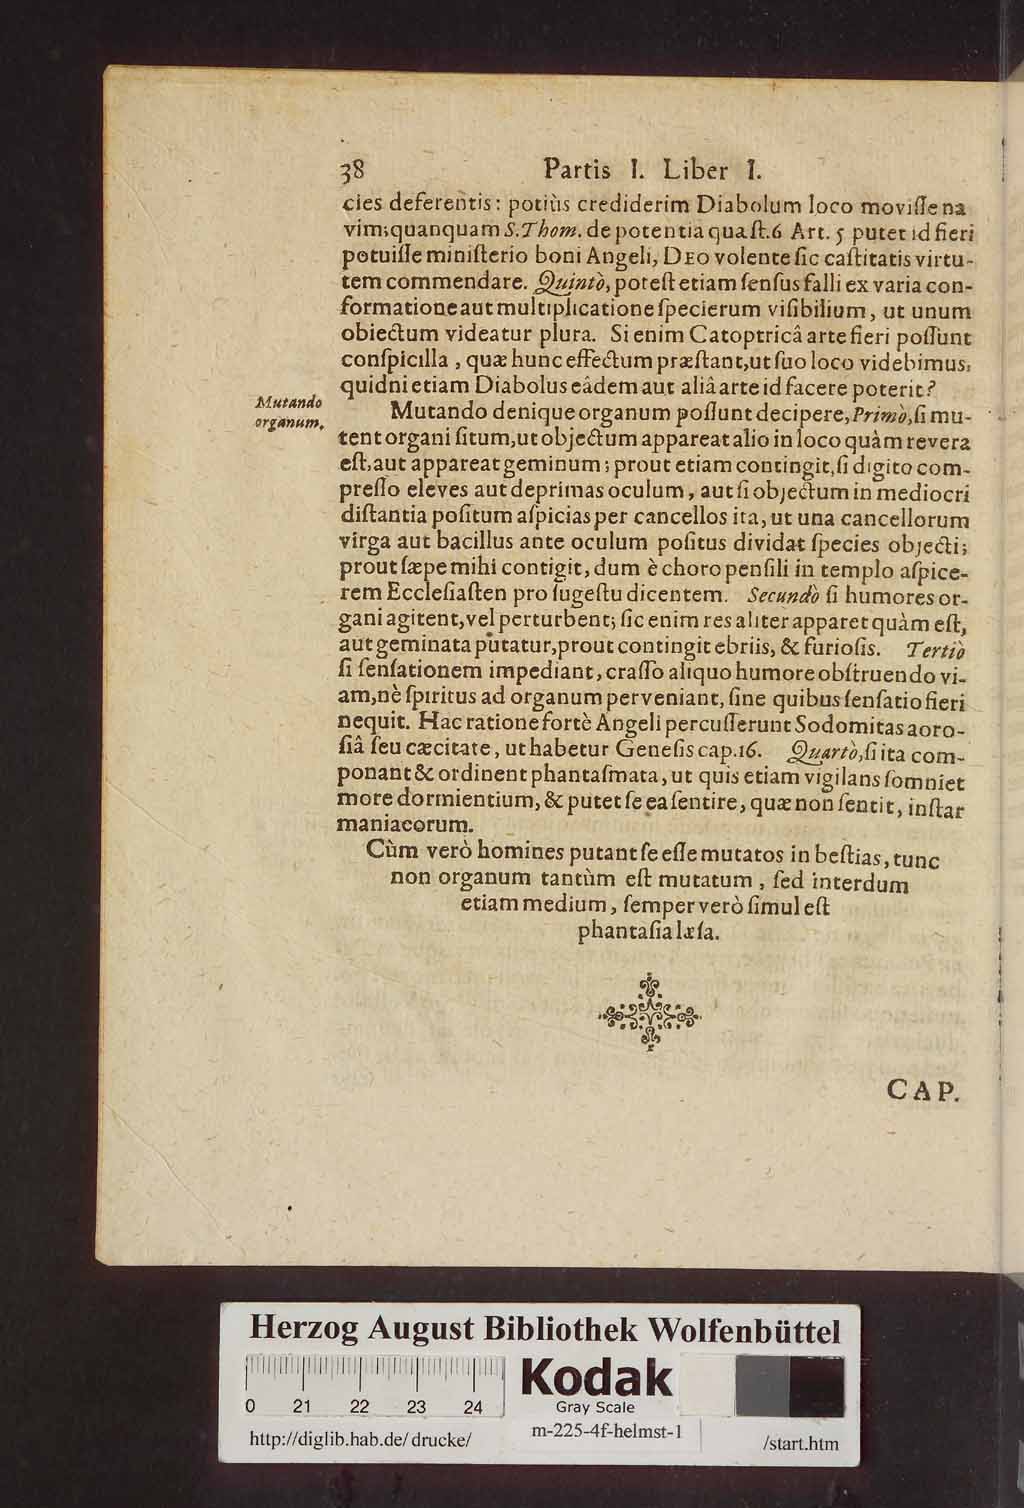 38 Partis I. Liber I.
cies deferentis: potiùs crediderim Diabolum loco moviſſe na
vim; quanquam S. Thom. de potentia quaſt. 6 Art. 5 putet id fieri
potuiſſe miniſterio boni Angeli, DEO volente ſic caſtitatis virtu-
tem commendare. Quintò, poteſt etiam ſenſus falli ex varia con-
formatione aut multiplicatione ſpecierum viſibilium, ut unum
obiectum videatur plura. Si enim Catoptricâ arte fieri poſſunt
conſpicilla, quæ hunc effectum præſtant, ut ſuo loco videbimus,
quidni etiam Diabolus eâdem aut aliâ arte id facere poterit?
Mutando
organum.
Mutando denique organum poſſunt decipere, Primò, ſi mu-
tent organi ſitum, ut objectum appareat alio in loco quàm revera
eſt, aut appareat geminum; prout etiam contingit, ſi digito com-
preſſo eleves aut deprimas oculum, aut ſi objectum in mediocri
diſtantia poſitum aſpicias per cancellos ita, ut una cancellorum
virga aut bacillus ante oculum poſitus dividat ſpecies objecti;
prout ſæpe mihi contigit, dum è choro penſili in templo aſpice-
rem Eccleſiaſten pro ſugeſtu dicentem. Secundò ſi humores or-
gani agitent, vel perturbent; ſic enim res aliter apparet quàm eſt,
aut geminata putatur, prout contingit ebriis, & furioſis. Tertiò
ſi ſenſationem impediant, craſſo aliquo humore obſtruendo vi-
am, nè ſpiritus ad organum perveniant, ſine quibus ſenſatio fieri
nequit. Hac ratione fortè Angeli percuſſerunt Sodomitas aoro-
ſiâ ſeu cæcitate, ut habetur Geneſis cap. 16. Quartò, ſi ita com-
ponant & ordinent phantaſmata, ut quis etiam vigilans ſomniet
more dormientium, & putet ſe ea ſentire, quæ non ſentit, inſtar
maniacorum.
Cùm verò homines putant ſe eſſe mutatos in beſtias, tunc
non organum tantùm eſt mutatum, ſed interdum
etiam medium, ſemper verò ſimul eſt
phantaſia læſa.
CAP.
Herzog August Bibliothek Wolfenbüttel
Kodak
0 21 22 23 24
Gray Scale
http://diglib.hab.de/drucke/
m-225-4f-helmst-1
/start.htm